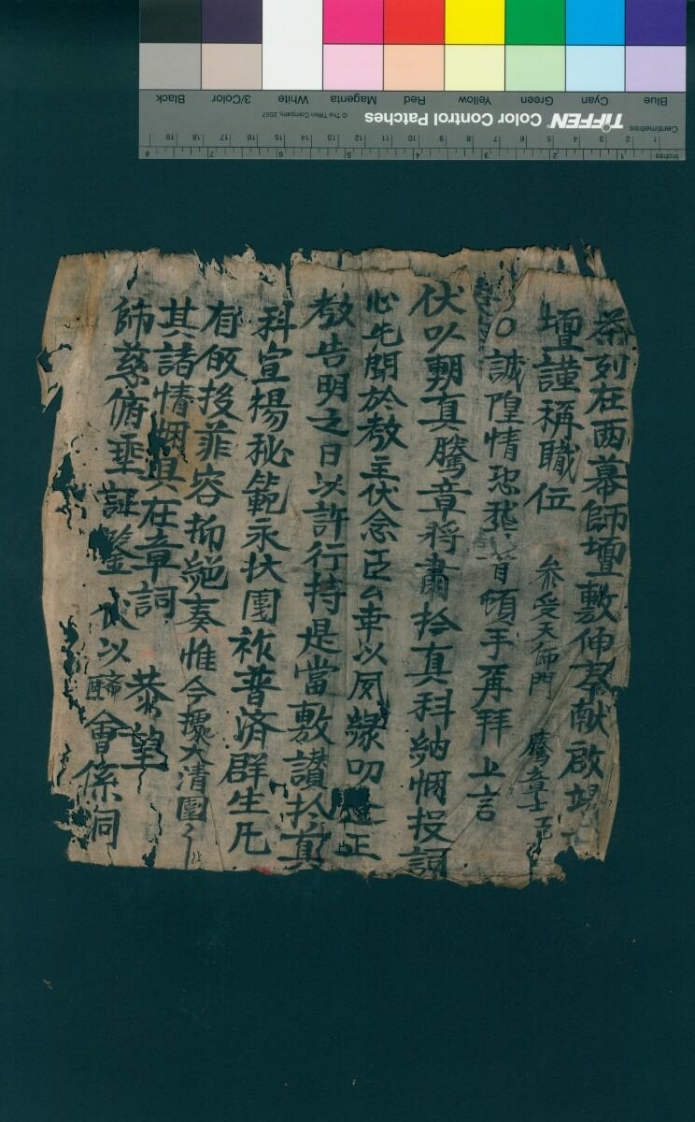 Blue Cyan Green Yellow Red Magenta White 3/Color Black
TIFFEN Color Control Patches
© The Tiffen Company, 2007
Centimetres
Inches
茶列在西幕師壇敷伸奉献啟
壇謹稱職位 參受天師門 騰章士
誠惶情恐稽首頓手再拜上言
伏以朝真騰章将肅拾真科納悃投詞
心先開於教主伏念臣厶幸以夙緣叨 正
教告明之日以許行持是當敷讃於真
科宣揚秘範永扶國祚普済群生凡
有皈投菲容抑絶奏惟今據大清國
其諸情悃具在章詞 恭望
師慈俯垂証鑒 伏以 會係洞